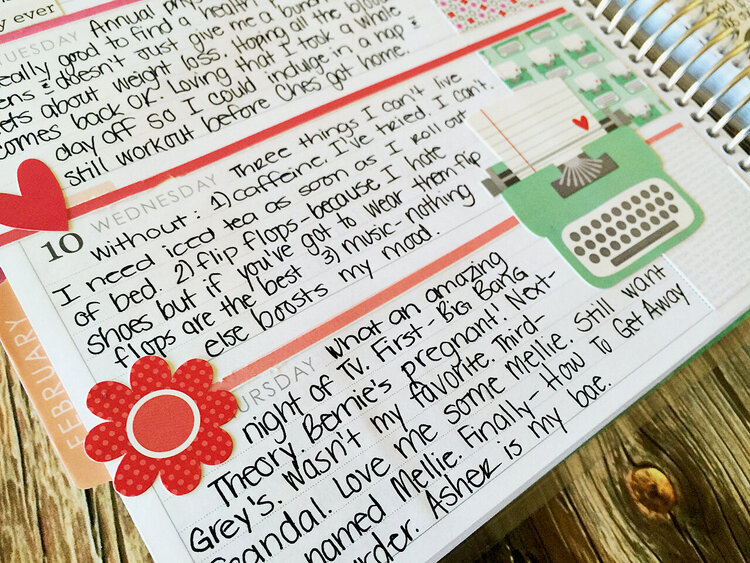 y ever
TUESDAY Annual
eally good to find a
ens & doesn't just give me a
ets about weight loss. Hoping all the
comes back OK. Loving that I took a whole
day off so I could indulge in a nap &
still workout before Ches got home.
10 WEDNESDAY Three things I can't live
without: 1) caffeine. I've tried. I can't.
I need iced tea as soon as I roll out
of bed. 2) flip flops-because I hate
shoes but if you've got to wear them flip
flops are the best 3) music-nothing
else boosts my mood.
FEBRUARY
URSDAY What an amazing
night of TV. First-Big Bang
Theory. Bernie's pregnant! Next-
Grey's. Wasn't my favorite. Third-
Scandal. Love me some Mellie. Still want
named Mellie. Finally-How To Get Away
rder. Asher is my bae.